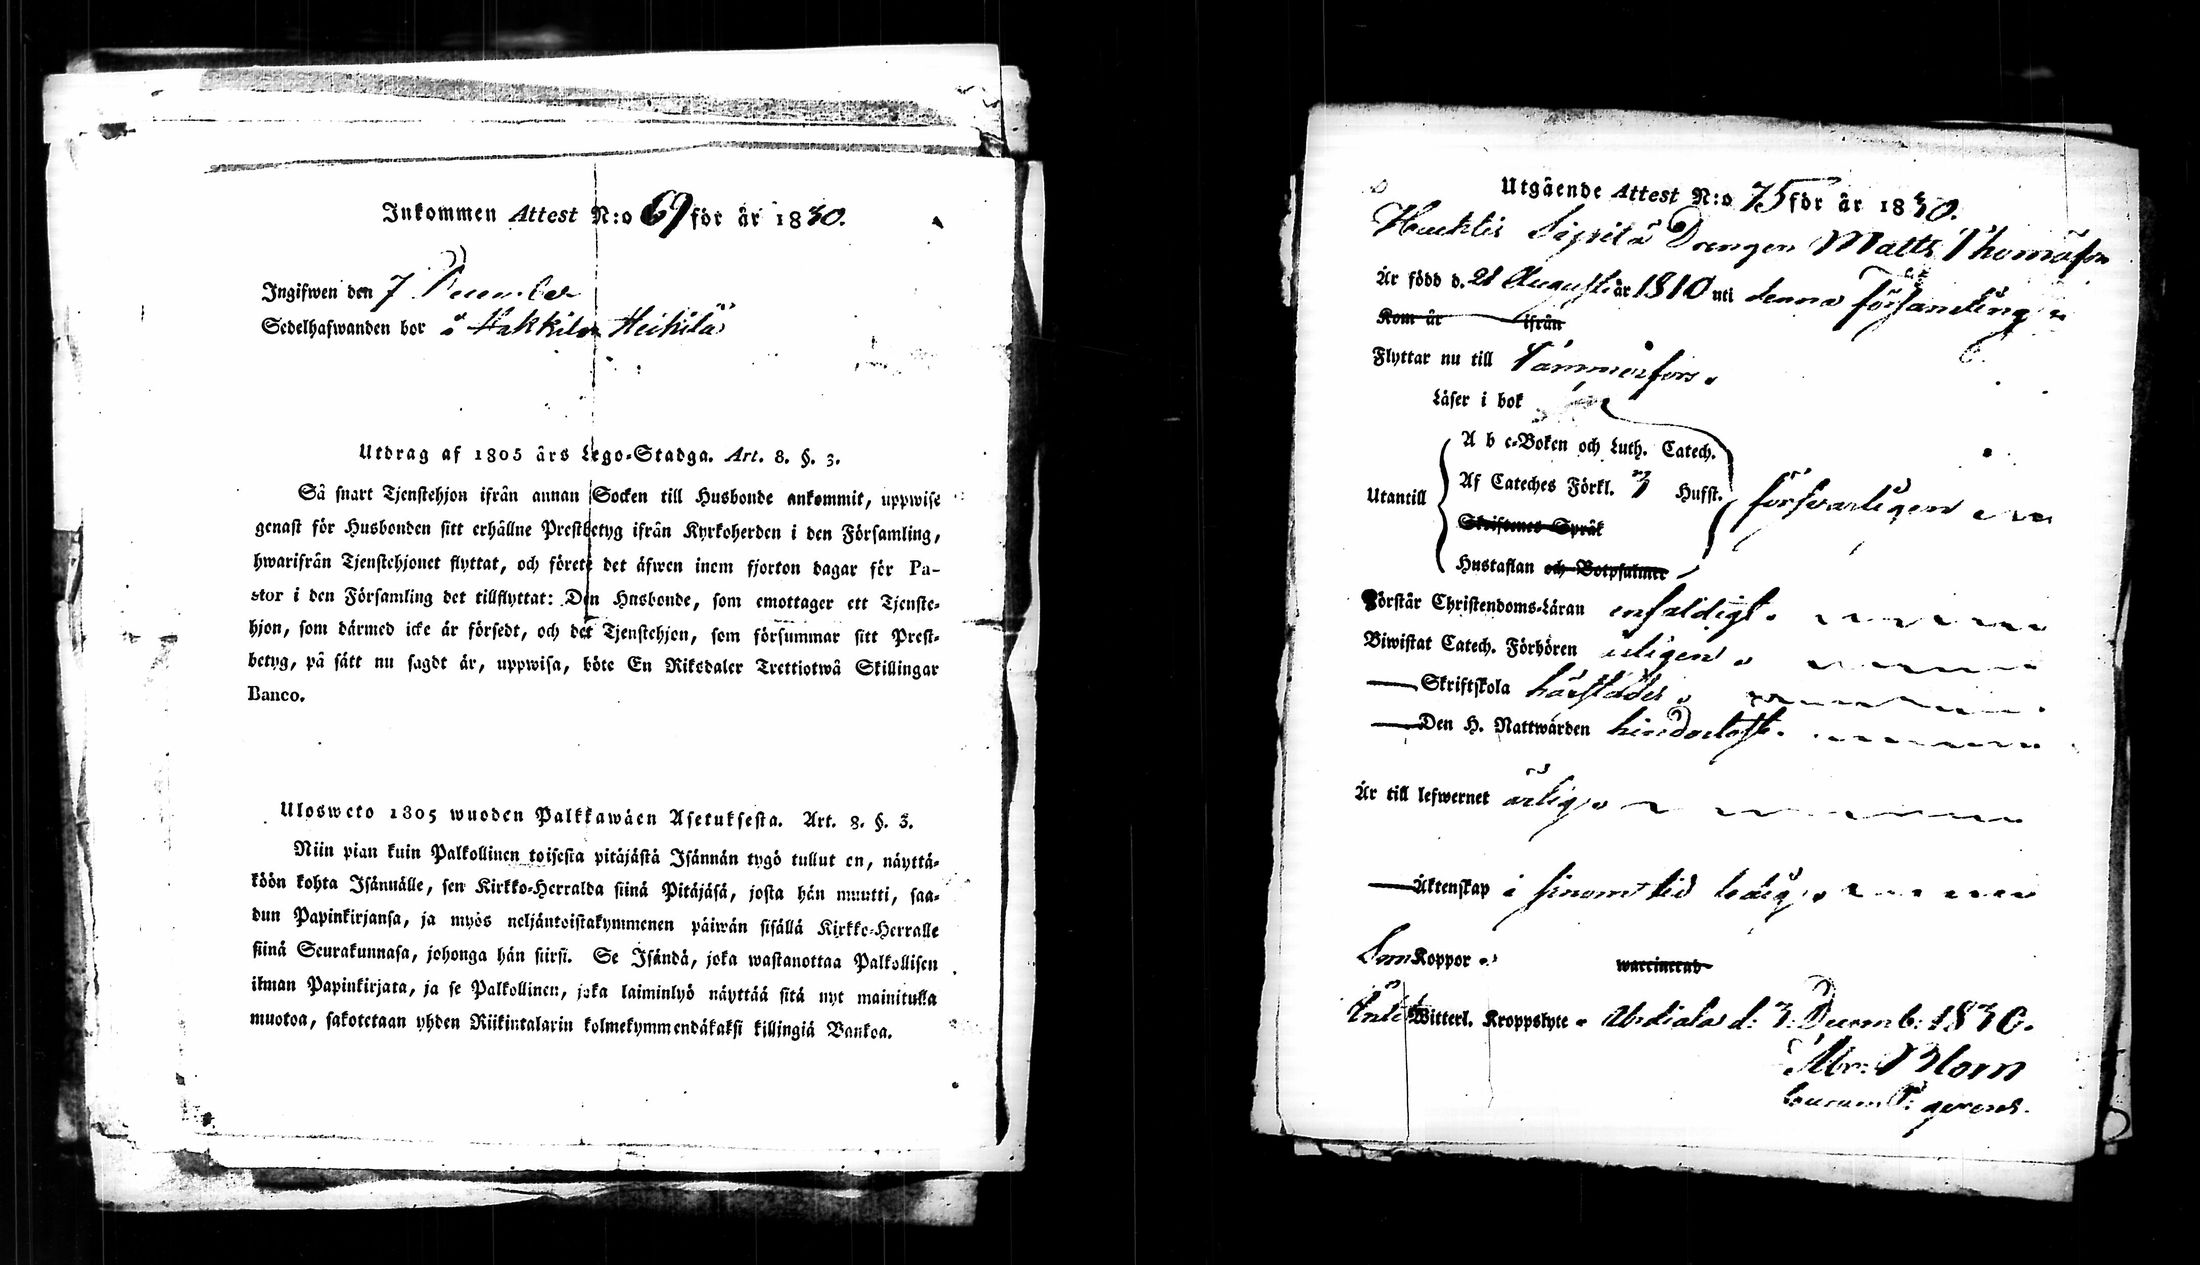 Inkommen Attest N:o 69 för år 1830.
Ingifwen den 7 December
Sedelhafwanden bor å Hakkila Heikilä
Utdrag af 1805 års Lego-Stadga. Art. 8. §. 3.
Så snart Tjenstehjon ifrån annan Socken till Husbonde ankommit, uppwise
genast för Husbonden sitt erhållne Prestbetyg ifrån Kyrkoherden i den Församling,
hwarifrån Tjenstehjonet flyttat, och förete det äfwen inom fjorton dagar för Pa-
stor i den Församling det tillflyttat: Den Husbonde, som emottager ett Tjenste-
hjon, som därmed icke är försedt, och det Tjenstehjon, som försummar sitt Prest-
betyg, på sätt nu sagdt är, uppwisa, böte En Riksdaler Trettiotwå Skillingar
Banco.
Uloswcto 1805 wuoden Palkkawäen Asetuksesta. Art. 8. §. 3.
Niin pian kuin Palkollinen toisesta pitäjästä Isännän tygö tullut on, näyttä-
köön kohta Isännälle, sen Kirkko-Herralda siinä Pitäjäsä, josta hän muutti, saa-
dun Papinkirjansa, ja myös neljäntoistakymmenen päiwän sisällä Kirkko-Herralle
siinä Seurakunnasa, johonga hän siirsi. Se Isändä, joka wastanottaa Palkollisen
ilman Papinkirjata, ja se Palkollinen, joka laiminlyö näyttää sitä nyt mainitulla
muotoa, sakotetaan yhden Riikintalarin kolmekymmendäkaksi killingiä Bankoa.
Utgående Attest N:o 75 för år 1830.
Huchtis Sipilä Drengen Matts Thomasson
Är född d. 21 Augusti år 1810 uti denna Församling
Kom år ifrån
Flyttar nu till Tammerfors.
Läser i bok
A b c-Boken och Luth. Catech.
Af Cateches Förkl. 3 Hufst.
Utantill försvarligen
Skriftenes Språk
Hustaflan och Botpsalmer
Förstår Christendoms-Läran enfaldigt.
Biwistat Catech. Förhören årligen
Skriftskola
Den H. Nattwarden hinderlöst.
Är till lefwernet ärlig
Äktenskap i sinom tid ledig
Koppor
waccinerad
Utan Witterl. Kroppslyte. Urdiala d: 3 Decemb: 1830.
Abr: Blom